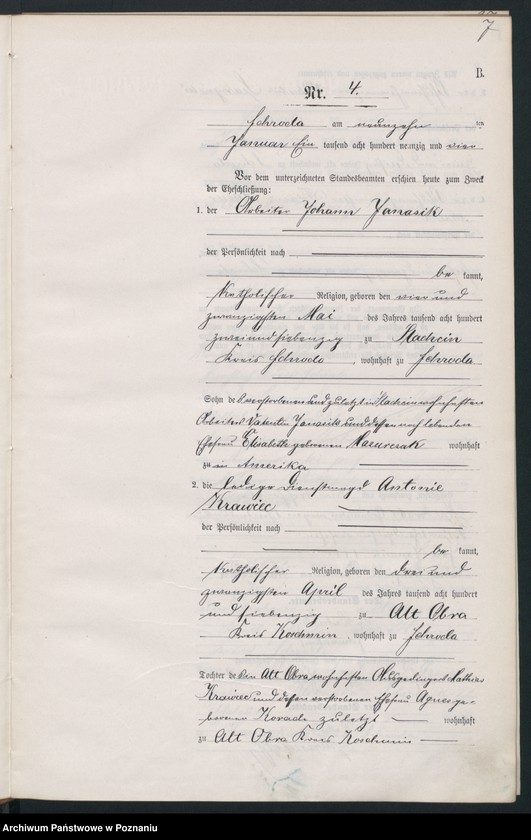 7
B.
Nr. 4.
Schroda am neunzehn ten
Januar Ein tausend acht hundert neunzig und vier
Vor dem unterzeichneten Standesbeamten erschien heute zum Zweck
der Eheschließung:
1. der Arbeiter Johann Janasik
der Persönlichkeit nach
be kannt,
katholischer Religion, geboren den vier und
zwanzigsten Mai des Jahres tausend acht hundert
zwei und siebenzig zu
Kreis Schroda, wohnhaft zu Schroda
Sohn des verstorbenen und zuletzt in wohnhaften
Arbeiters Valentin Janasik und dessen noch lebenden
Ehefrau Elisabeth geborenen Mazurczak wohnhaft
zu in Amerika
2. die ledige Dienstmagd Antonie
Krawiec
der Persönlichkeit nach
be kannt,
katholischer Religion, geboren den drei und
zwanzigsten April des Jahres tausend acht hundert
und siebenzig zu Alt Obra
Kreis Koschmin, wohnhaft zu Schroda
Tochter des in Alt Obra wohnhaften Ausgedingers Mathias
Krawiec und dessen verstorbenen Ehefrau Agnes ge-
borenen Korada zuletzt wohnhaft
zu Alt Obra Kreis Koschmin
Archiwum Państwowe w Poznaniu